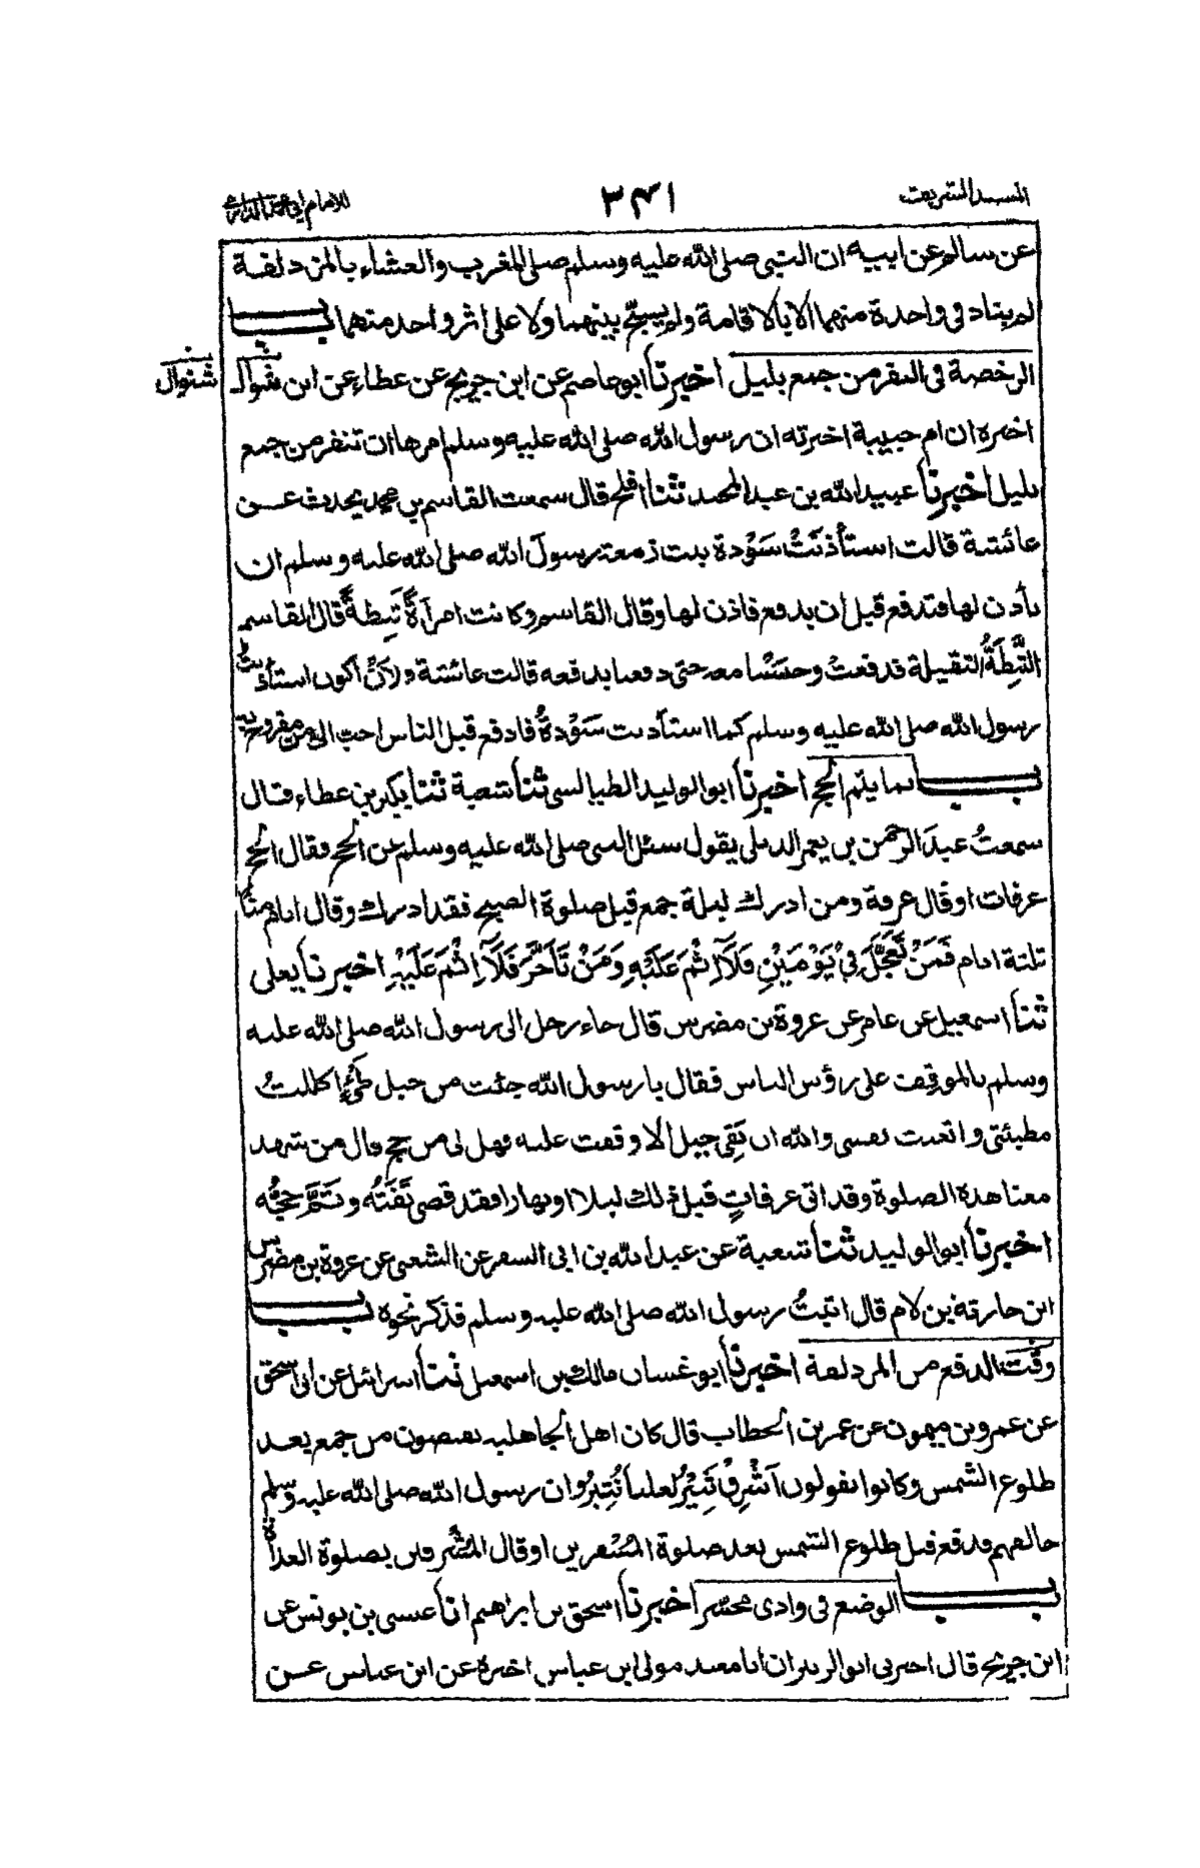 المسند الشريف
٣٤١
للامام ابي محمد الدارمي
عن سالم عن ابيه ان النبي صلى الله عليه وسلم صلى المغرب والعشاء بالمزدلفة
لم يناد في واحدة منهما الا بالاقامة ولم يسبح بينهما ولا على اثر واحد منهما باب
الرخصة في النفر من جمع بليل اخبرنا ابو عاصم عن ابن جريج عن عطاء عن ابن شوال
شنوال
اخبره ان ام حبيبة اخبرته ان رسول الله صلى الله عليه وسلم امرها ان تنفر من جمع
بليل اخبرنا عبيد الله بن عبد المجيد ثنا افلح قال سمعت القاسم بن محمد يحدث عن
عائشة قالت استأذنَتْ سَوْدة بنت زمعة رسول الله صلى الله عليه وسلم ان
يأذن لها فتدفع قبل ان يدفع فاذن لها وقال القاسم وكانت امرأةً ثَبِطَةً قال القاسم
الثَّبِطَةُ الثقيلة فدفعتْ وحبسنا معه حتى دفعنا بدفعه قالت عائشة ولاَنْ اكون استأذنت
رسول الله صلى الله عليه وسلم كما استأذنت سَوْدةُ فادفع قبل الناس احب الى من مفروح به
باب بما يتم الحج اخبرنا ابو الوليد الطيالسى ثنا شعبة ثنا بكير بن عطاء قال
سمعتُ عبدَ الرحمن بن يعمر الديلي يقول سئل النبي صلى الله عليه وسلم عن الحج فقال الحج
عرفات او قال عرفة ومن ادرك ليلة جمع قبل صلوة الصبح فقد ادرك وقال ايام منًا
ثلثة ايام فَمَنْ تَعَجَّلَ فِيْ يَوْمَيْنِ فَلَآ اِثْمَ عَلَيْهِ وَمَنْ تَاَخَّرَ فَلَآ اِثْمَ عَلَيْهِ اخبرنا يعلى
ثنا اسمعيل عن عامر عن عروة بن مضرس قال جاء رجل الى رسول الله صلى الله عليه
وسلم بالموقف على رؤس الناس فقال يا رسول الله جئت من جبل طَىّءٍ اكللتُ
مطيئتى واتعبت نفسى والله ان بَقِىَ جبل الا وقفت عليه فهل لى من حج قال من شهد
معنا هذه الصلوة وقد اتى عرفاتٍ قبل ذلك ليلا او نهارا فقد قضى تَفَثَهُ وتَمَّ حجُّه
اخبرنا ابو الوليد ثنا شعبة عن عبد الله بن ابي السفر عن الشعبى عن عروة بن مضرس
ابن حارثة بن لام قال اتيتُ رسول الله صلى الله عليه وسلم فذكر نحوه باب
وقت الدفع من المزدلفة اخبرنا ابو غسان مالك بن اسمعيل ثنا اسرائيل عن ابي اسحق
عن عمرو بن ميمون عن عمر بن الخطاب قال كان اهل الجاهلية يفيضون من جمع بعد
طلوع الشمس وكانوا يقولون اَشْرِقْ ثَبِيْرُ لعلنا نُغِيْرُ وان رسول الله صلى الله عليه وسلم
خالفهم فدفع قبل طلوع الشمس بعد صلوة المُسْفرين او قال المُشْرقين بصلوة الغداة
باب الوضع في وادى محسّر اخبرنا اسحق بن ابراهيم انا عيسى بن يونس عن
ابن جريج قال اخبرني ابو الزبير ان ابا معبد مولى ابن عباس اخبره عن ابن عباس عن